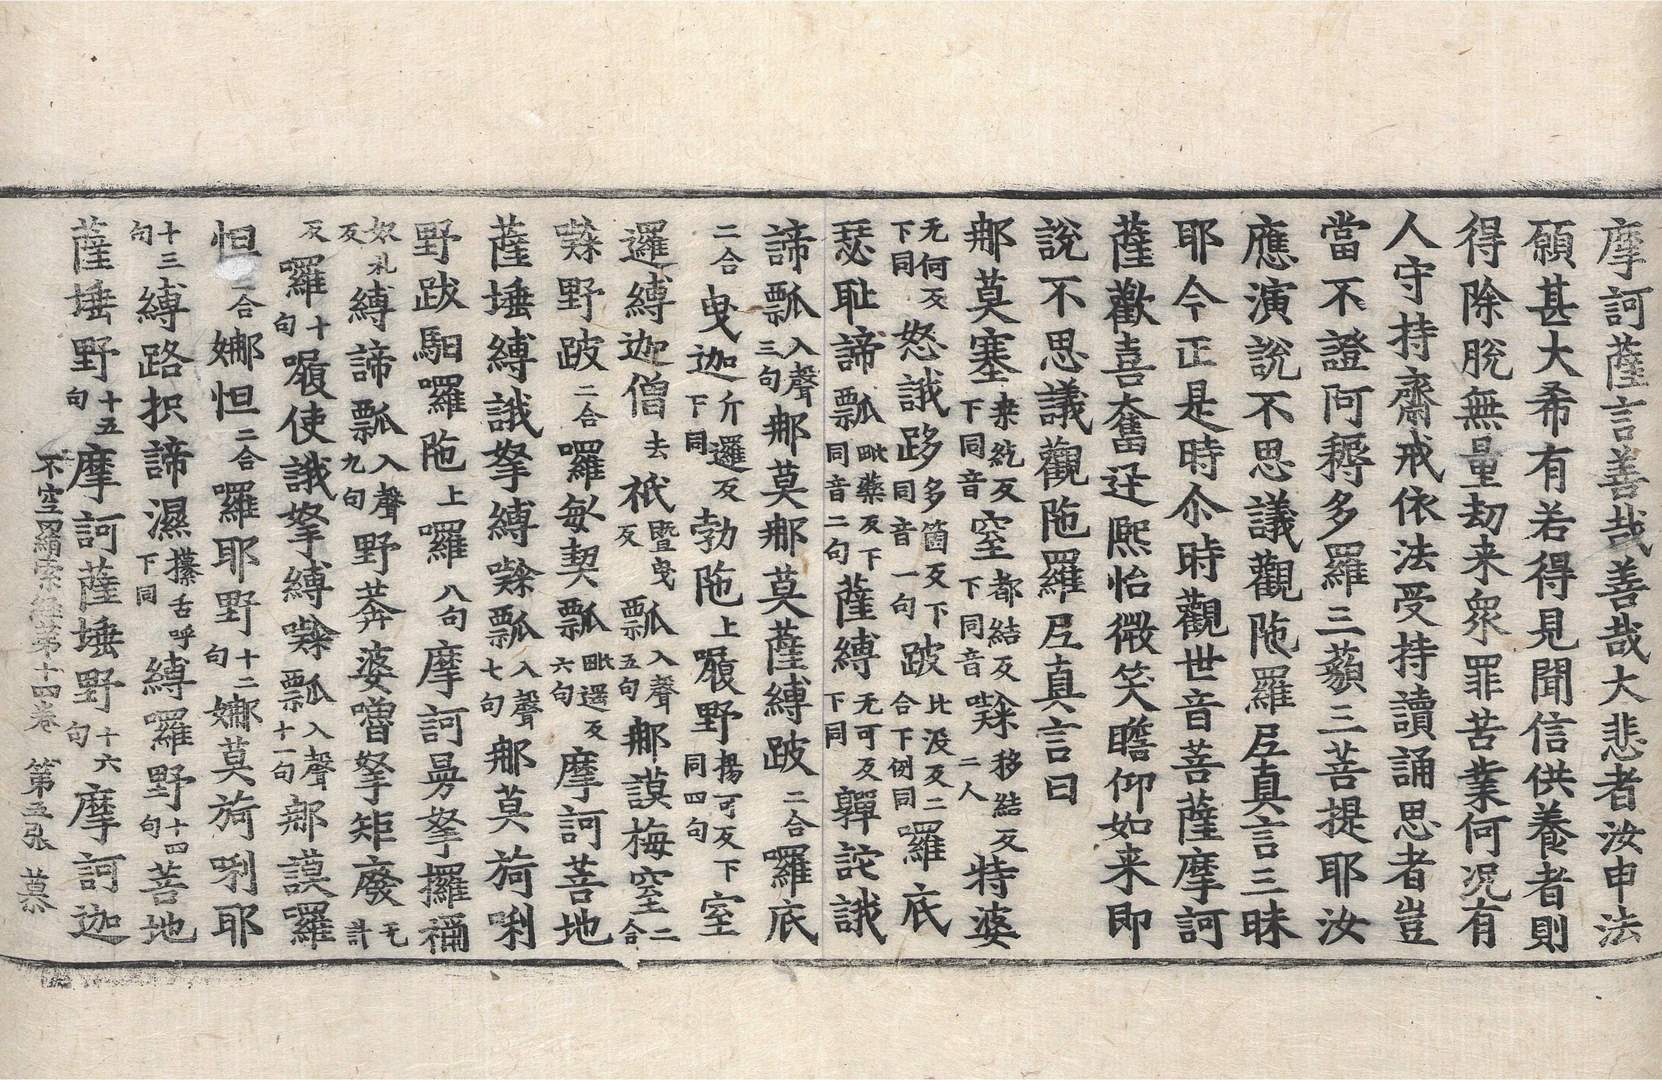 摩訶薩言善哉善哉大悲者汝申法
願甚大希有若得見聞信供養者則
得除脫無量劫来衆罪苦業何況有
人守持齋戒依法受持讀誦思者豈
當不證阿耨多羅三藐三菩提耶汝
應演說不思議觀陁羅尼真言三昧
耶今正是時尒時觀世音菩薩摩訶
薩歡喜奮迅熙怡微笑瞻仰如来即
說不思議觀陁羅尼真言曰
那莫塞桒紇反下同音窒都結反下同音㗚移結反二合特婆
无何反下同怒誐跢多箇反下同音一句跛比没反二合下例同羅底
瑟耻諦瓢毗藥反下同音二句薩縛无可反下同嚲詫誐
諦瓢入聲三句那莫那莫薩縛跛二合囉底
二合曳迦斤邏反下同勃陁上履野楊可反下同四句室
邏縛迦僧去祇暨曳反瓢入聲五句那謨梅窒二合
㗚野跛二合囉敏契瓢毗遥反六句摩訶菩地
薩埵縛誐拏縛㗚瓢入聲七句那莫旖唎
野跋馹囉陁上囉八句摩訶曼拏攞禰
奴礼反縛諦瓢入聲九句野莽婆嚕拏矩廢无計
反囉十句履使誐拏縛㗚瓢入聲十一句那謨羅
怛二合娜怛二合囉耶野十二句娜莫旖唎耶
十三句縛路抧諦濕攥舌呼下同縛囉野十四句菩地
薩埵野十五句摩訶薩埵野十六句摩訶迦
不空羂索經第十四卷　第五張　慕